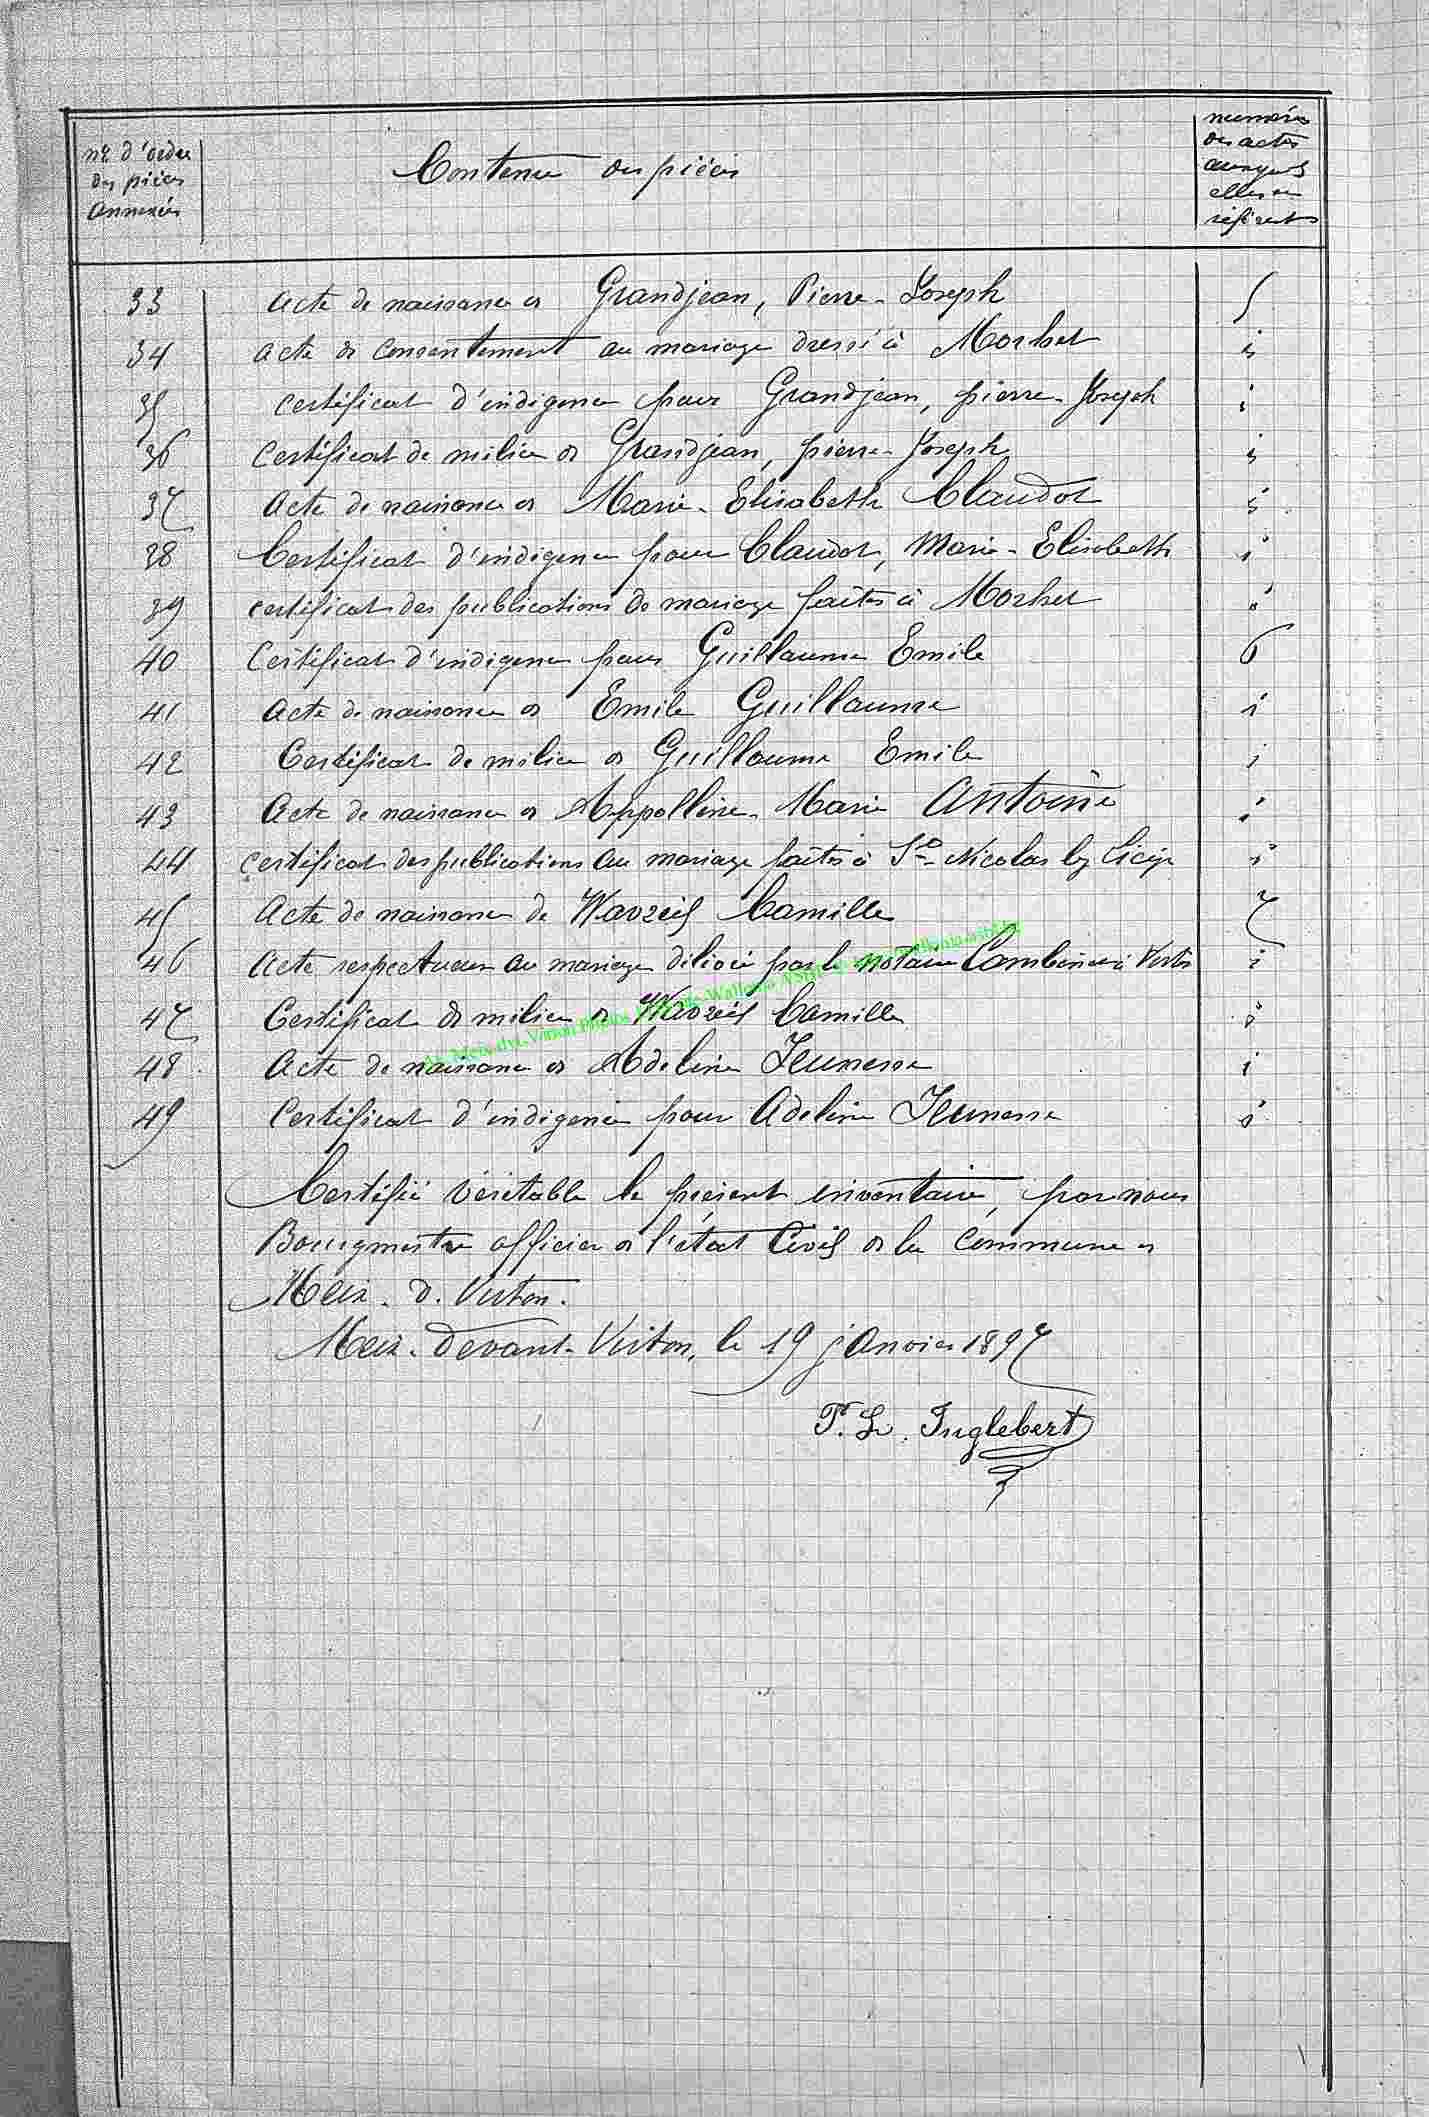 nos d'ordre
des pièces
annexées
Contenu des pièces
numéros
des actes
auxquels
elles se
réfèrent
33 Acte de naissance de Grandjean, Pierre-Joseph 5
34 Acte de consentement au mariage dressé à Morhet
35 certificat d'indigence pour Grandjean, pierre-Joseph
36 Certificat de milice de Grandjean, pierre-Joseph
37 Acte de naissance de Marie-Elisabeth Claudot
38 Certificat d'indigence pour Claudot, Marie-Elisabeth
39 certificat des publications de mariage faites à Morhet
40 Certificat d'indigence pour Guillaume Emile 6
41 Acte de naissance de Emile Guillaume
42 Certificat de milice de Guillaume Emile
43 Acte de naissance de Appolline-Marie Antoine
44 Certificat des publications au mariage faites à St-Nicolas lez
45 Acte de naissance de Wavreil Camille 7
46 Acte respectueux au mariage délivré par le notaire à Virton
47 Certificat de milice de Wavreil Camille
48 Acte de naissance de Adeline Jeunesse
49 Certificat d'indigence pour Adeline Jeunesse
Certifié véritable le présent inventaire, par nous
Bourgmestre officier de l'état Civil de la Commune de
Meix-d-Virton.
Meix-devant-Virton, le 19 janvier 1897
P. L. Inglebert